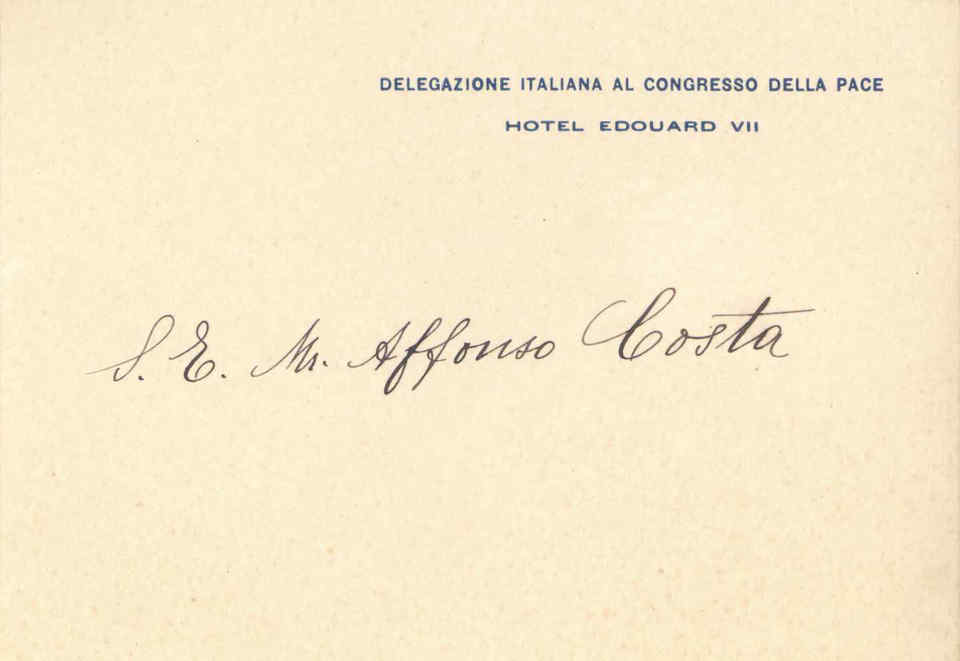 DELEGAZIONE ITALIANA AL CONGRESSO DELLA PACE
HOTEL EDOUARD VII
S. E. Mr. Affonso Costa